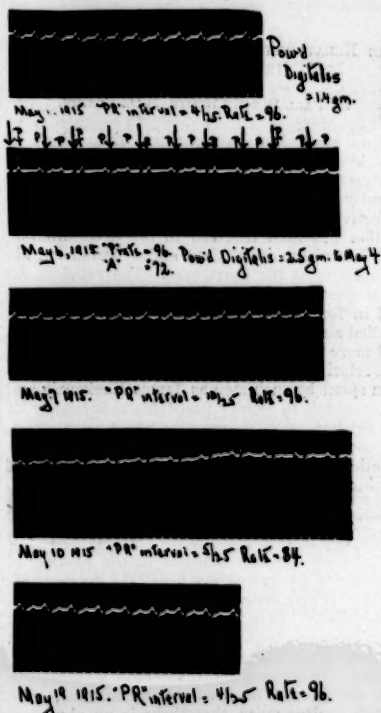 Pow'd
Digitalis
= 1.4 gm.
May 1915 "PR" interval = 4/25. Rate = 96.
May 6, 1915 "P" rate = 96 Pow'd Digitalis = 2.5 gm. to May 4
"A" " : 72.
May 7 1915. "PR" interval = 10/25 Rate = 96.
May 10 1915 "PR" interval = 5/25 Rate = 84.
May 19 1915. "PR" interval = 4/25 Rate = 96.